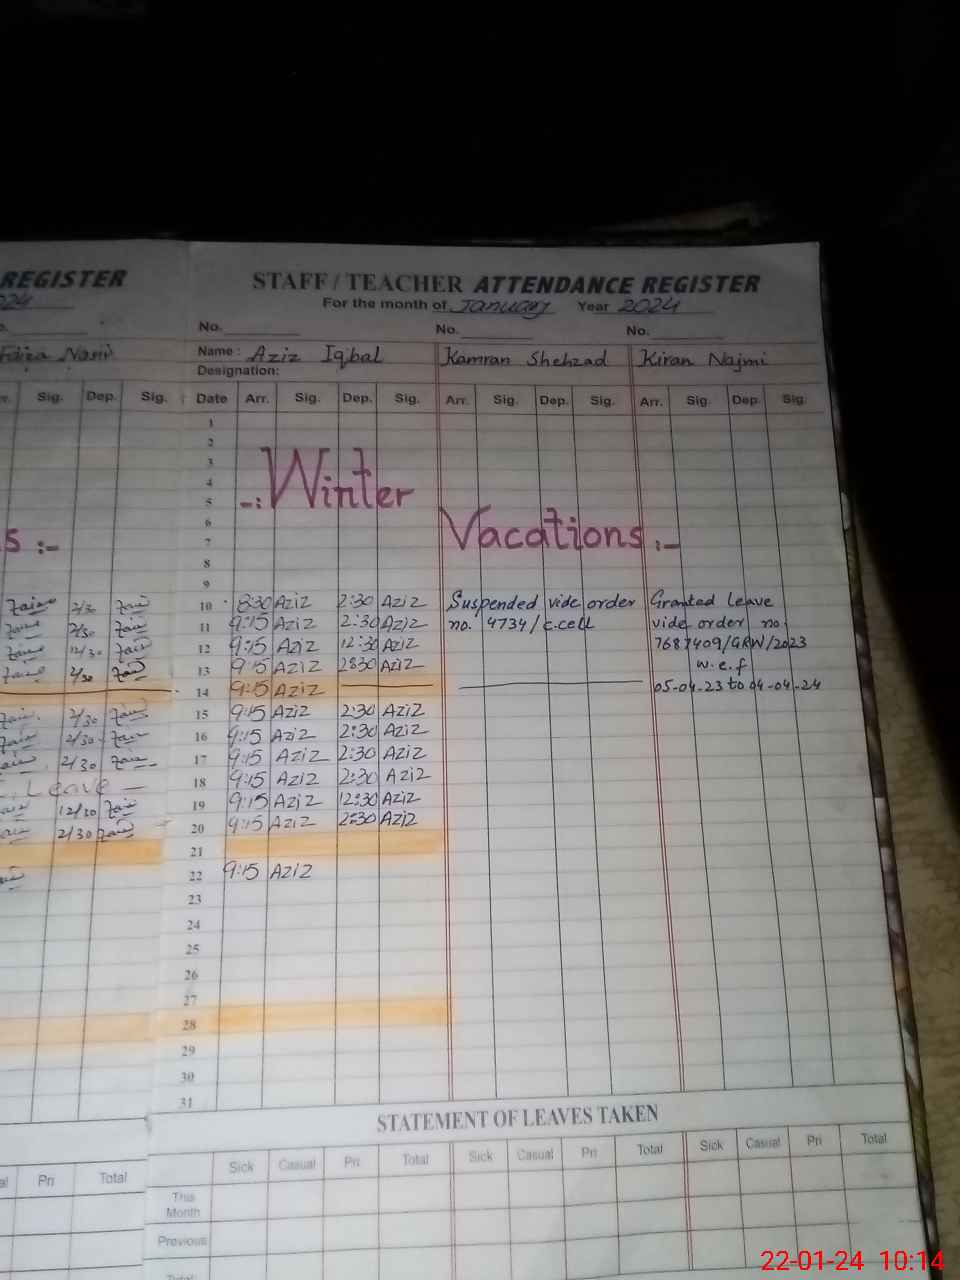 REGISTER
STAFF / TEACHER ATTENDANCE REGISTER
For the month of January Year 2024
No. No. No.
Name : Aziz Iqbal Kamran Shehzad Kiran Najmi
Designation:
Sig. Dep. Sig. Date Arr. Sig. Dep. Sig. Arr. Sig. Dep. Sig. Arr. Sig. Dep. Sig.
1
2
3
4
-: Winter
5
6
Vacations :-
7
s :-
8
9
2/30 10 8:30 Aziz 2:30 Aziz Suspended vide order Granted leave
2/30 11 9:15 Aziz 2:30 Aziz no. 4734/c.cell vide order no
12/30 12 9:15 Aziz 12:30 Aziz 7687409/GRW/2023
2/30 13 9:15 Aziz 2:30 Aziz w.e.f
14 9:15 Aziz 05-04-23 to 04-04-24
2/30 15 9:15 Aziz 2:30 Aziz
2/30 16 9:15 Aziz 2:30 Aziz
2/30 17 9:15 Aziz 2:30 Aziz
Leave 18 9:15 Aziz 2:30 Aziz
12/30 19 9:15 Aziz 12:30 Aziz
2/30 20 9:15 Aziz 2:30 Aziz
21
22 9:15 Aziz
23
24
25
26
27
28
29
30
31
STATEMENT OF LEAVES TAKEN
Pri Total Sick Casual Pri Total Sick Casual Pri Total Sick Casual Pri Total
This
Month
Previous
Total
22-01-24 10:14